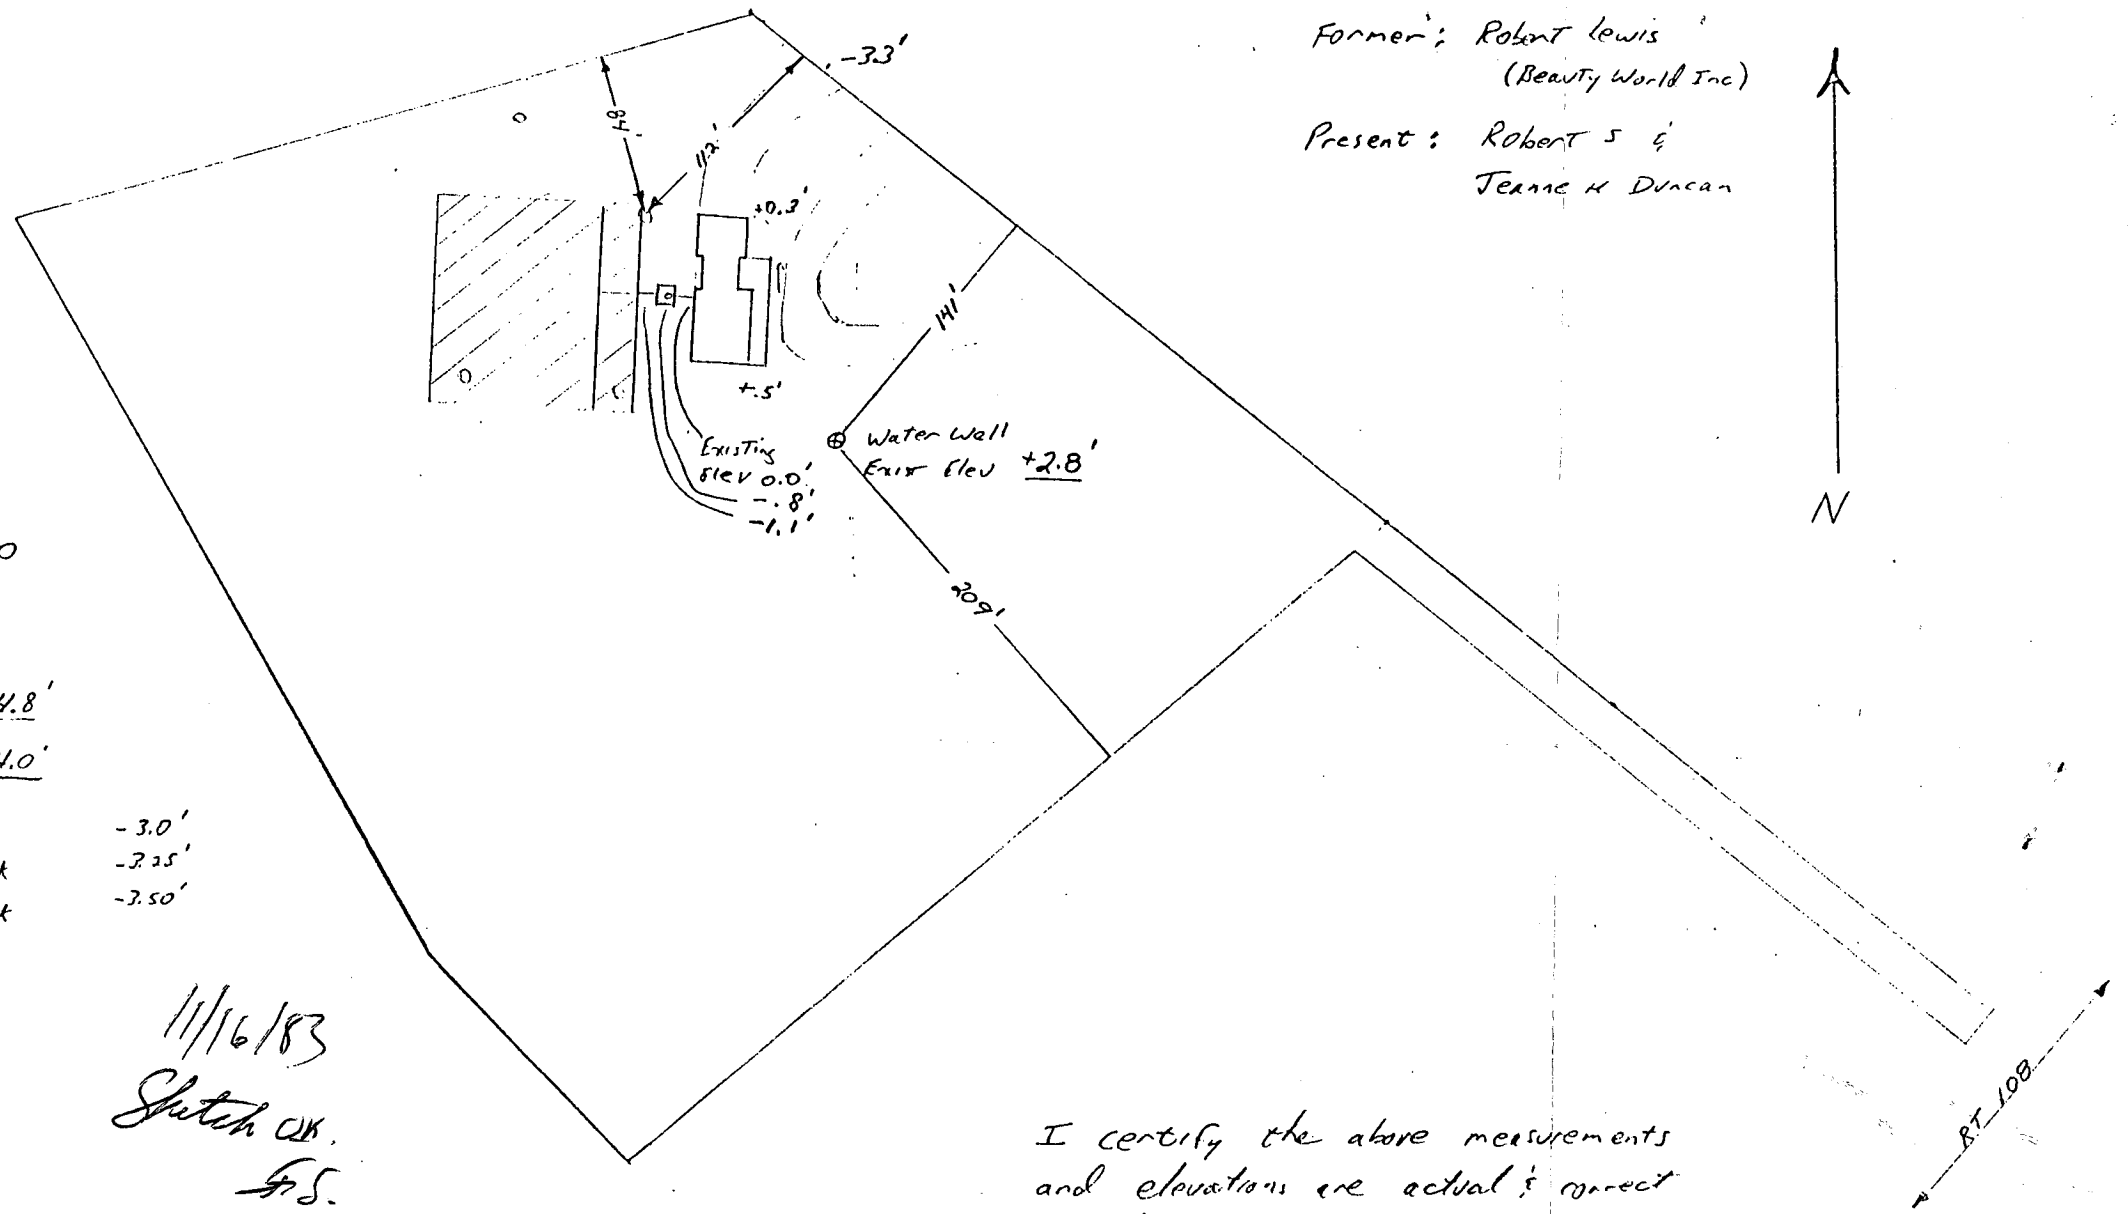 Former: Robert Lewis
(Beauty World Inc)
Present: Robert S &
Jeanne H Duncan
N
-3.3'
84'
112'
+0.3'
141'
+.5'
Water Well
Exist Elev +2.8'
Existing
Elev 0.0'
-.8'
-1.1'
209'
4.8'
4.0'
-3.0'
-3.25'
-3.50'
11/16/83
Sketch OK.
RT 108
I certify the above measurements
and elevations are actual & correct